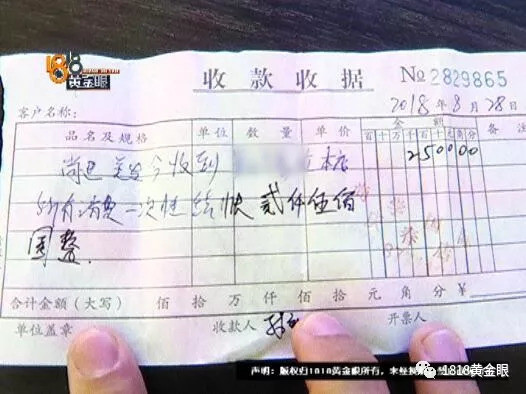 1818黄金眼
收款收据 No 2829865
2018年8月28日
客户名称:
品名及规格 单位 数量 单价 金额 备注
百十万千百十元角分
尚 美发今收到 本店 250000
所有消费一次性结快贰仟伍佰
圆整.
合计金额(大写) 佰 拾 万 仟 佰 拾 元 角 分 ¥
单位盖章 收款人 开票人
声明:版权归1818黄金眼所有,未经
1818黄金眼